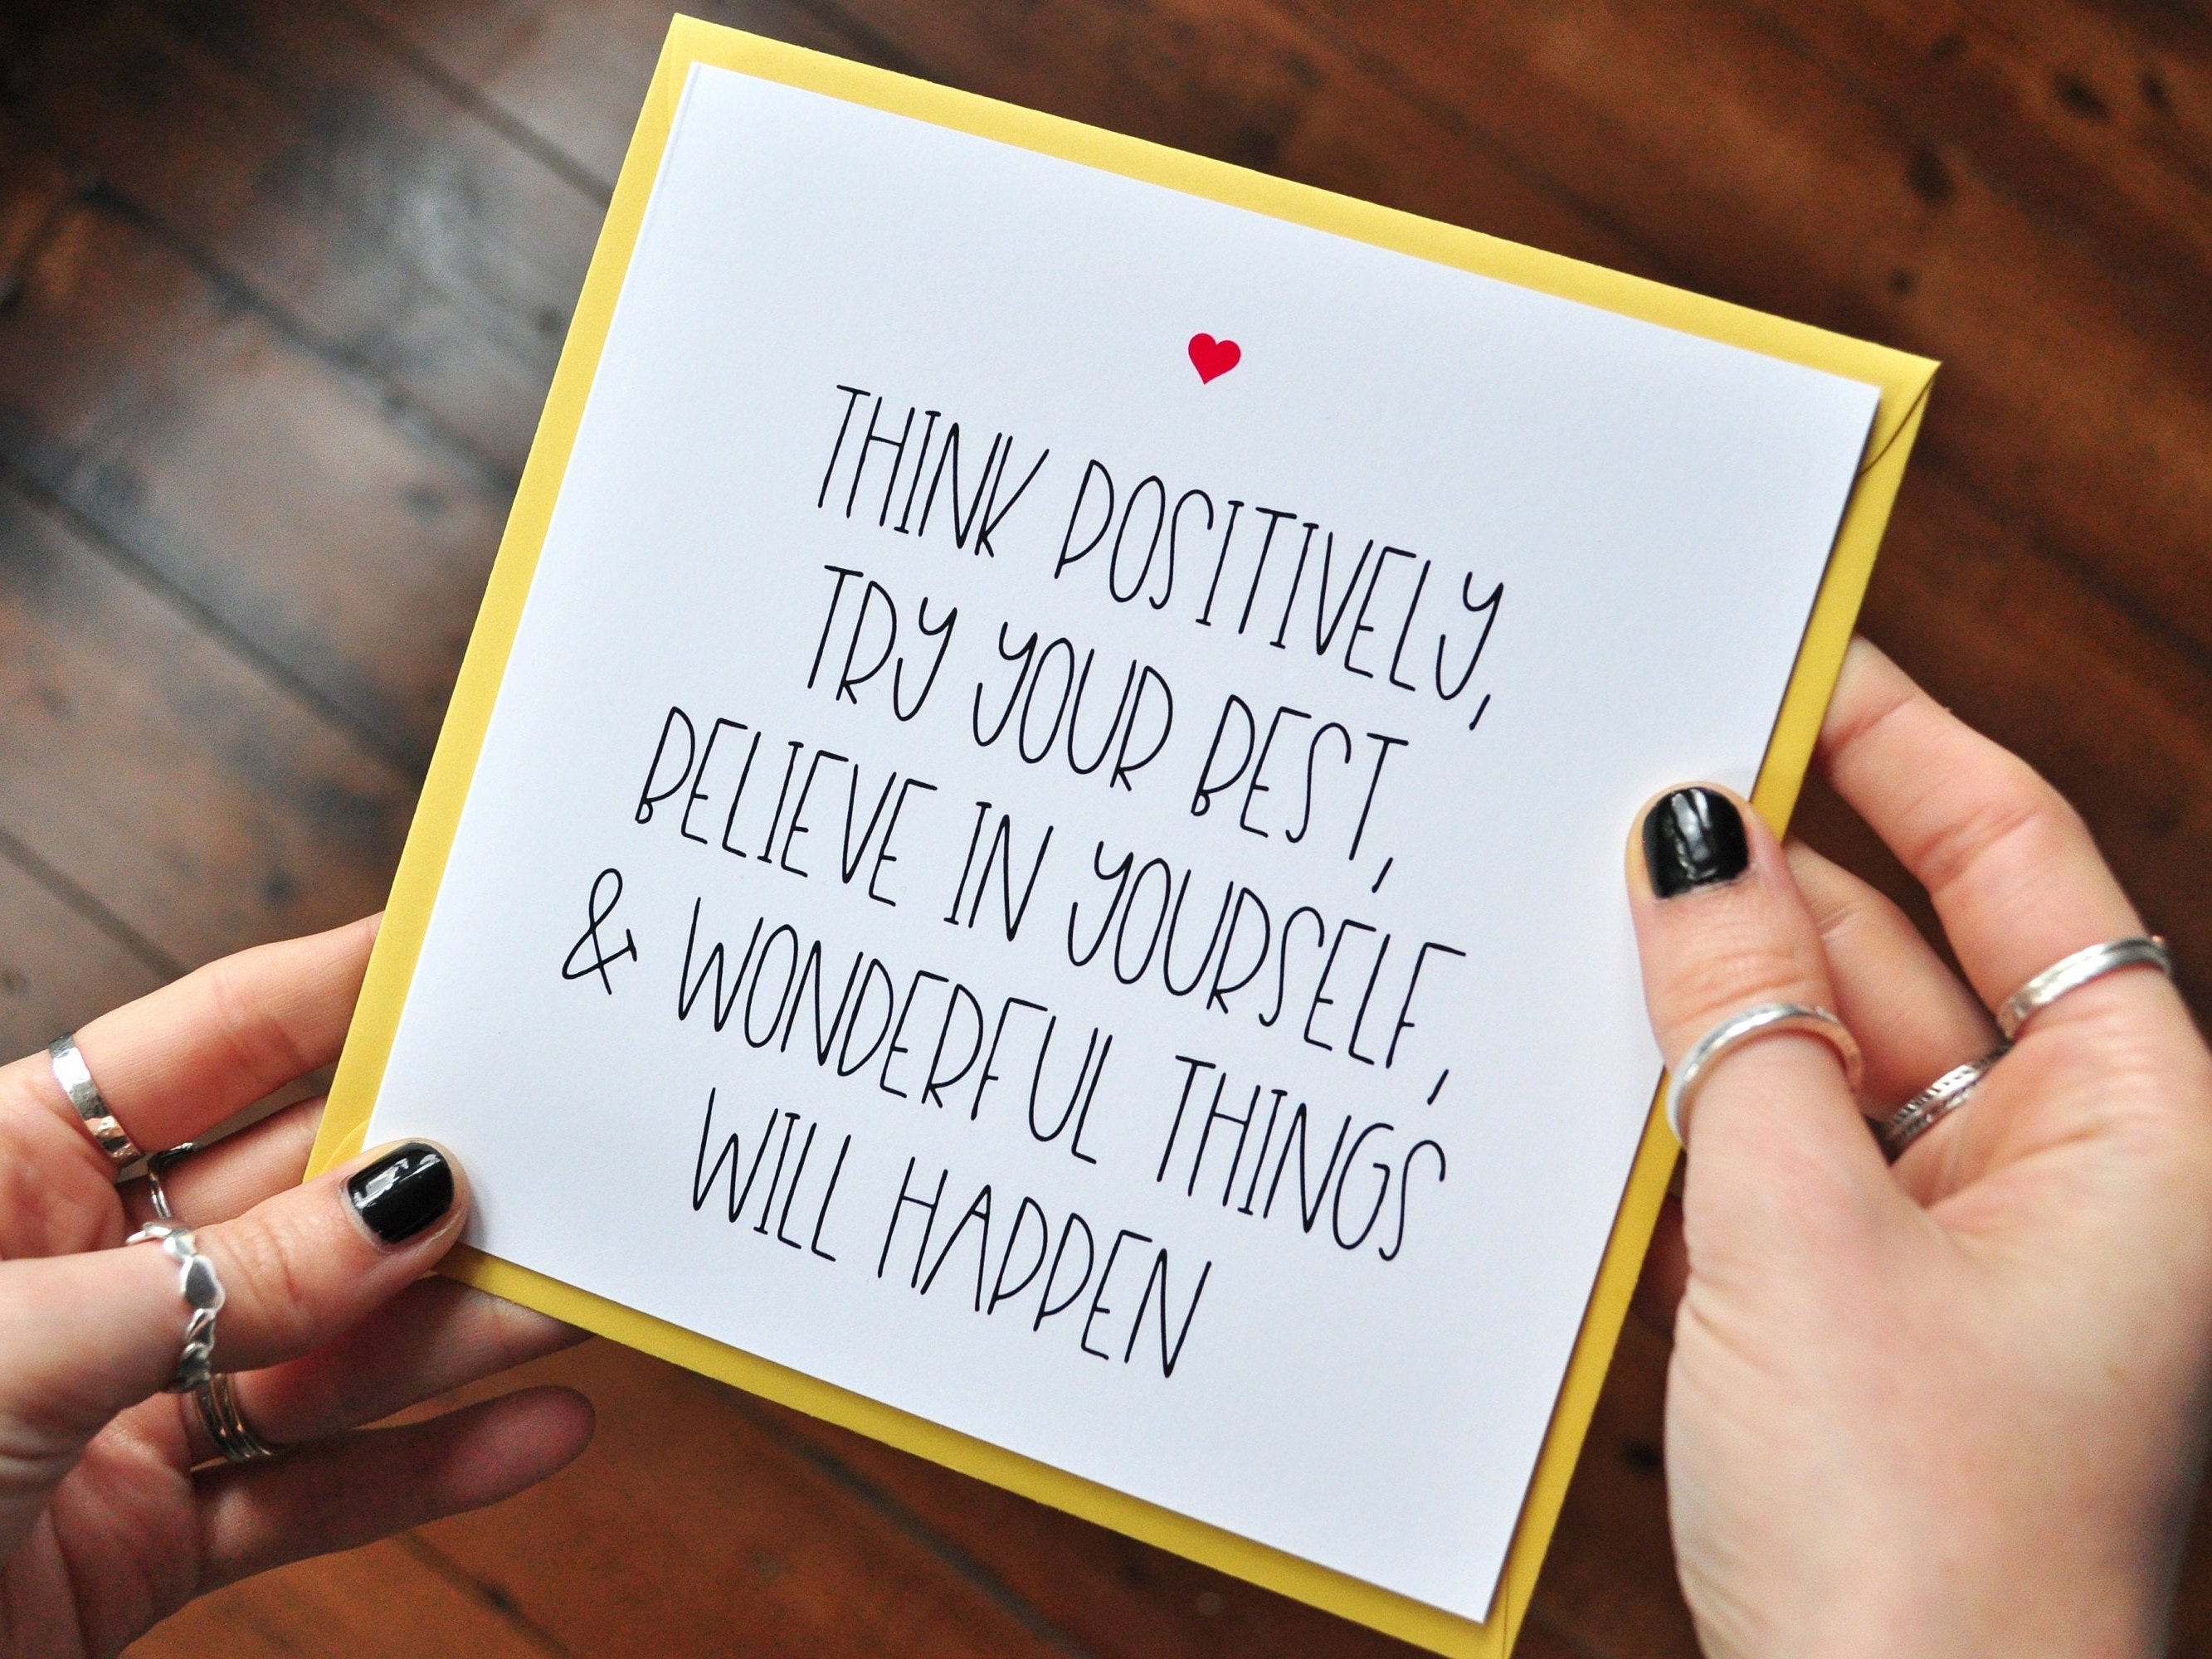 THINK POSITIVELY,
TRY YOUR BEST,
BELIEVE IN YOURSELF,
& WONDERFUL THINGS
WILL HAPPEN